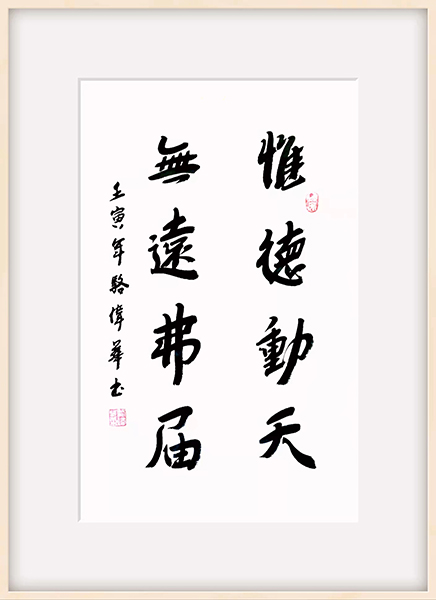 惟德動天
無遠弗届
壬寅年駱偉華书